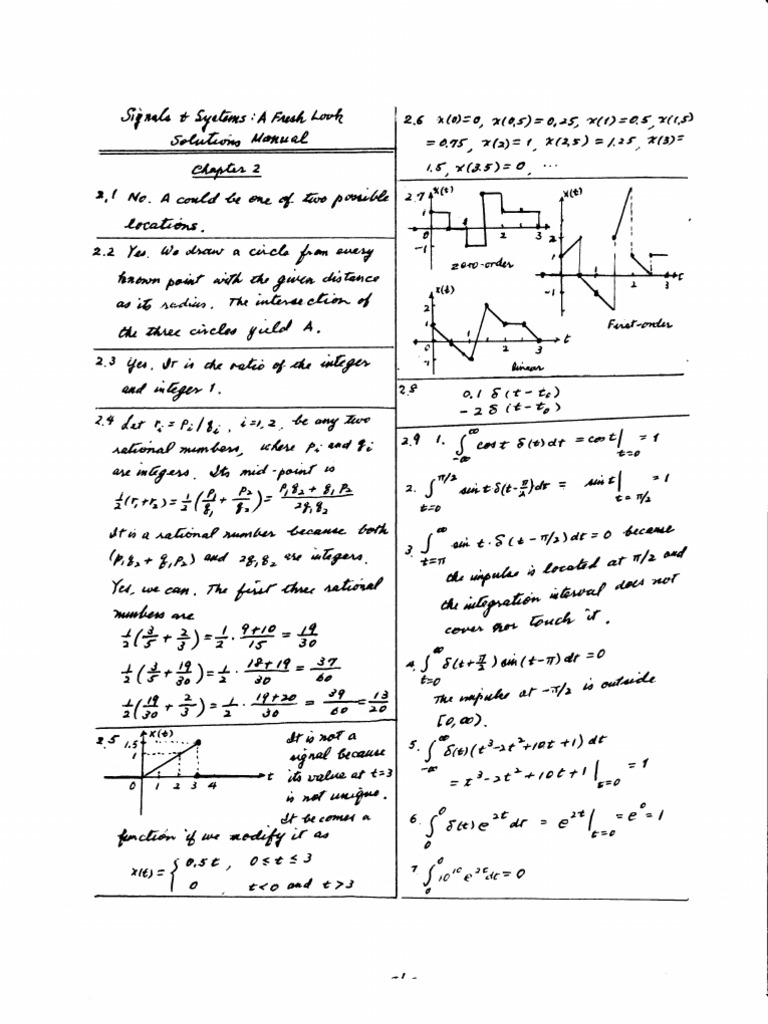 Signals & Systems: A Fresh Look
Solutions Manual
Chapter 2
2.1 No. A could be one of two possible
locations.
2.2 Yes. We draw a circle from every
known point with the given distance
as its radius. The intersection of
the three circles yield A.
2.3 Yes. It is the ratio of the integer
and integer 1.
2.4 Let rᵢ = pᵢ/qᵢ, i=1,2, be any two
rational numbers, where pᵢ and qᵢ
are integers. Its mid-point is
1/2 (r₁+r₂) = 1/2 (p₁/q₁ + p₂/q₂) = (p₁q₂ + q₁p₂)/(2q₁q₂)
It is a rational number because both
(p₁q₂ + q₁p₂) and 2q₁q₂ are integers.
Yes, we can. The first three rational
numbers are
1/2 (3/5 + 2/3) = 1/2 · (9+10)/15 = 19/30
1/2 (3/5 + 19/30) = 1/2 · (18+19)/30 = 37/60
1/2 (19/30 + 2/3) = 1/2 · (19+20)/30 = 39/60 = 13/20
2.5 x(t)
1.5
1
0 1 2 3 4 t
It is not a
signal because
its value at t=3
is not unique.
It becomes a
function if we modify it as
x(t) = { 0.5t, 0 ≤ t ≤ 3
0 t<0 and t>3
2.6 x(0)=0, x(0.5)=0.25, x(1)=0.5, x(1.5)
=0.75, x(2)=1, x(2.5)=1.25, x(3)=
1.5, x(3.5)=0, ...
2.7 x(t)
1
0 2 3
-1
zero-order
x(t)
2
1
1 2 3 t
-1
First-order
x(t)
2
1
0 1 2 3 t
-1
linear
2.8 0.1 δ(t-t₀)
-2 δ(t-t₀)
2.9 1. ∫_{-∞}^{∞} cos t δ(t)dt = cos t|_{t=0} = 1
2. ∫_{t=0}^{π/2} sin t δ(t-π/2)dt = sin t|_{t=π/2} = 1
3. ∫_{t=π}^{∞} sin t·δ(t-π/2)dt = 0 because
the impulse is located at π/2 and
the integration interval does not
cover nor touch it.
4. ∫_{t=0}^{∞} δ(t+π/2) sin(t-π)dt = 0
The impulse at -π/2 is outside
[0,∞).
5. ∫_{-∞}^{∞} δ(t)(t³-2t²+10t+1) dt
= t³-2t²+10t+1|_{t=0} = 1
6. ∫_{0}^{0} δ(t)e^{2t} dt = e^{2t}|_{t=0} = e⁰ = 1
7 ∫_{0}^{0} 10¹⁰ e^{2t}dt = 0
-1-